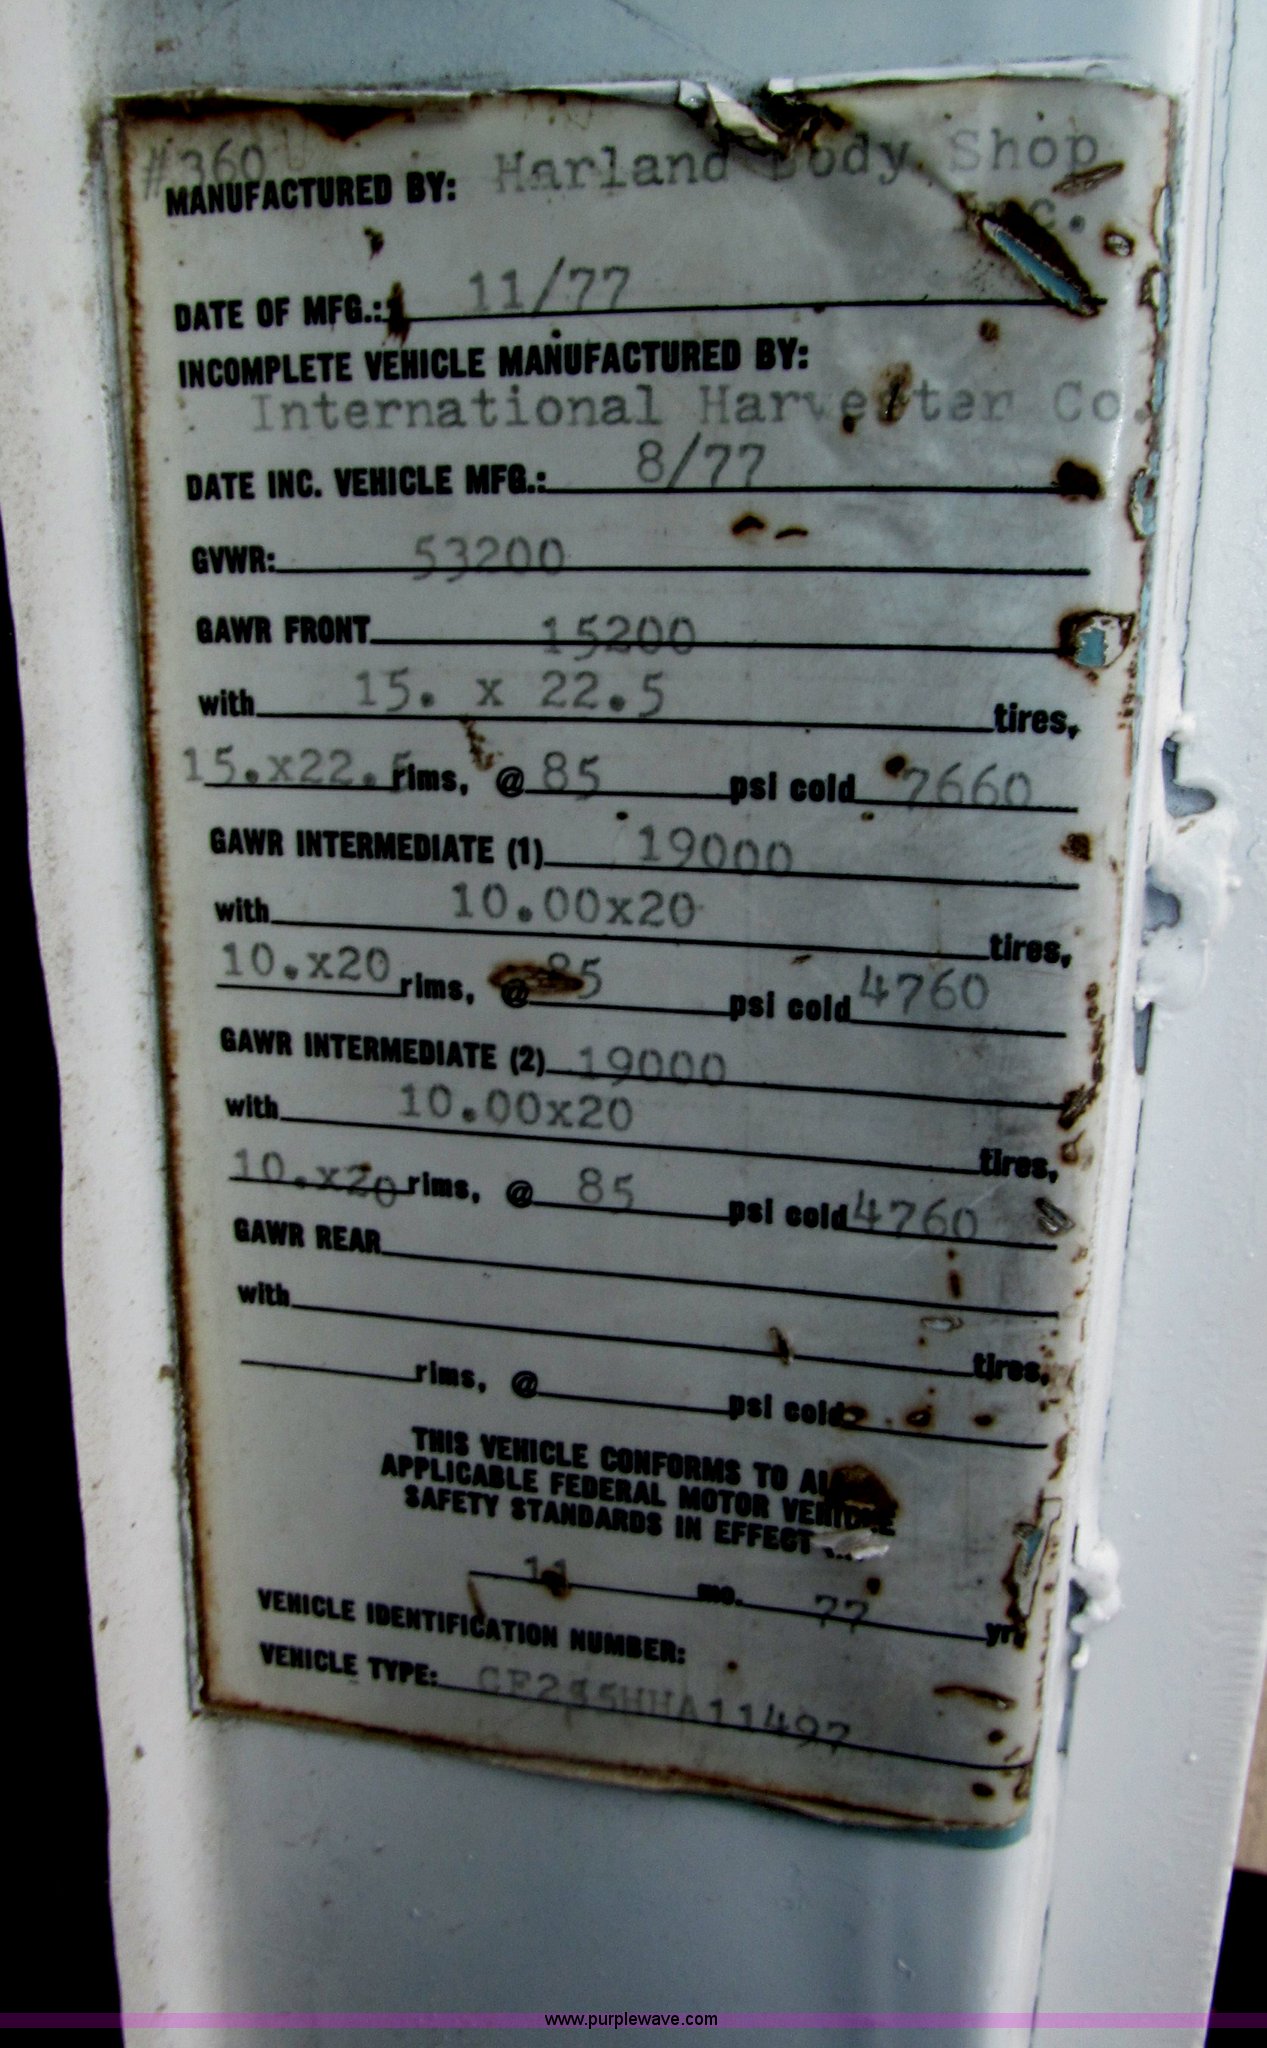 #360
MANUFACTURED BY: Harland Body Shop
Inc.
DATE OF MFG.: 11/77
INCOMPLETE VEHICLE MANUFACTURED BY:
International Harvester Co.
DATE INC. VEHICLE MFG.: 8/77
GVWR: 53200
GAWR FRONT 15200
with 15. x 22.5 tires,
15.x22.5 rims, @ 85 psi cold 7660
GAWR INTERMEDIATE (1) 19000
with 10.00x20 tires,
10.x20 rims, @ 85 psi cold 4760
GAWR INTERMEDIATE (2) 19000
with 10.00x20 tires,
10.x20 rims, @ 85 psi cold 4760
GAWR REAR
with tires,
rims, @ psi cold
THIS VEHICLE CONFORMS TO ALL
APPLICABLE FEDERAL MOTOR VEHICLE
SAFETY STANDARDS IN EFFECT
11 mo. 77 yr.
VEHICLE IDENTIFICATION NUMBER:
VEHICLE TYPE:
www.purplewave.com